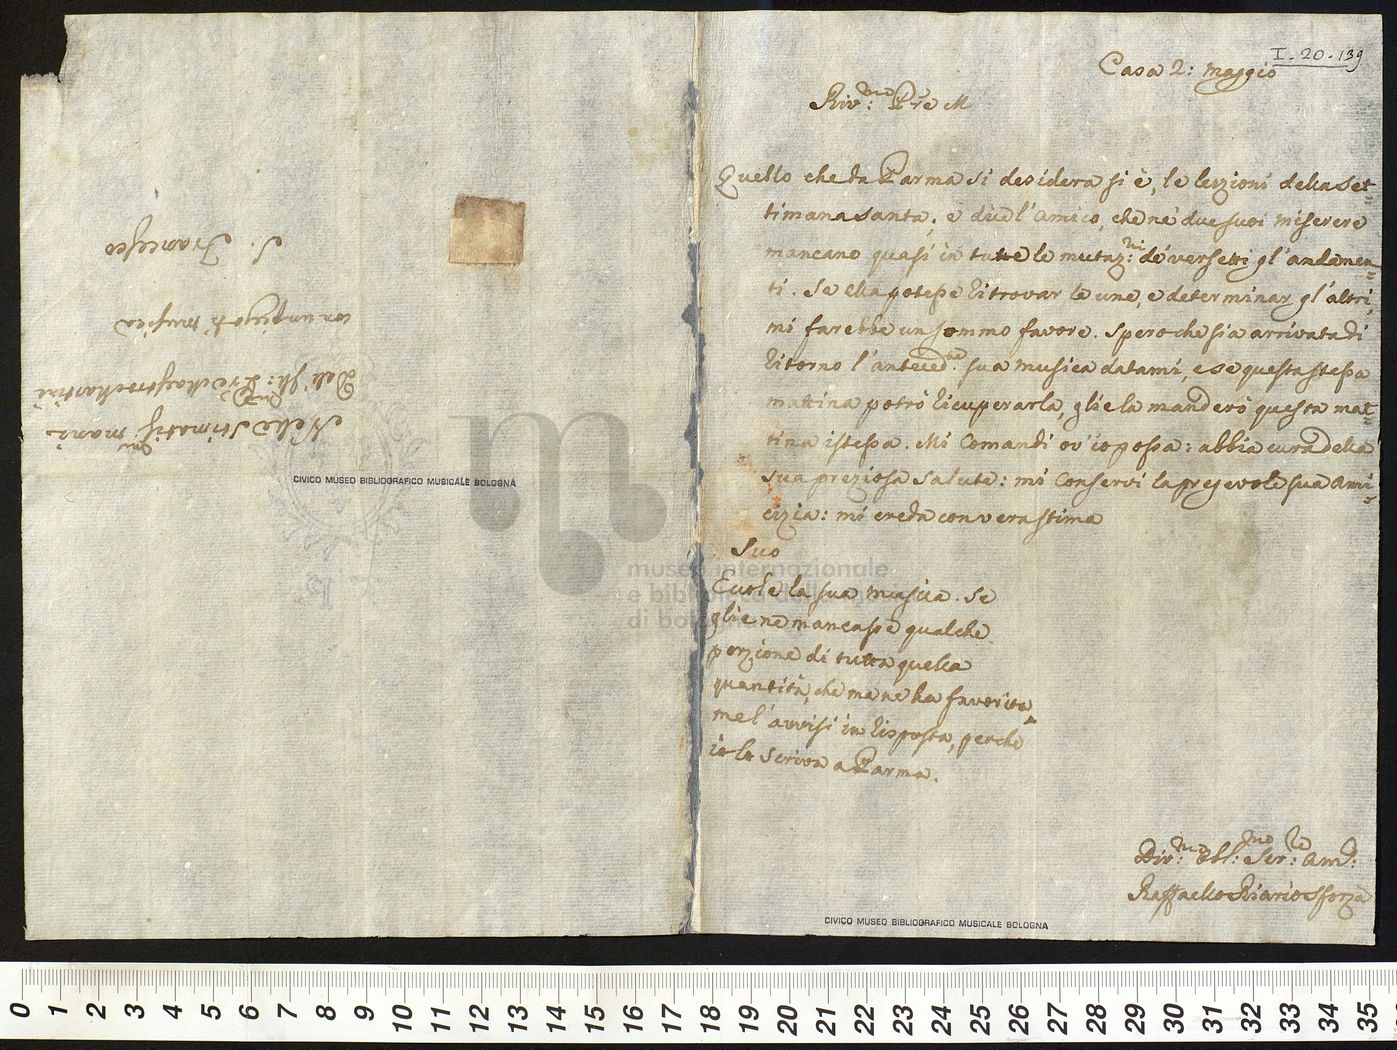 I. 20. 139
Casa 2: Maggio
Riv:mo Pre M
Quello che da Parma si desidera si è, le lezzioni della Set=
timana santa; e dice l'Amico, che ne' due suoi miserere
mancano quasi in tutte le mutaz:ni de' versetti gl'andamen=
ti. Se ella potesse ritrovar le une, e determinar gl'altri,
mi farebbe un sommo favore. Spero che sia arrivata di
ritorno l'anteced: sua musica datami, e se questa stessa
mattina potrò ricuperarla, gliela manderò questa mat=
tina istessa. Mi Comandi ov'io possa: abbia cura della
sua preziosa salute: mi Conservi la pregevole sua Ami=
cizia: mi creda con vera stima
Suo
Eccole la sua musica. Se
gliene mancasse qualche
porzione di tutta quella
quantità, che me ne ha favorita
me l'avvisi in risposta, perchè
io lo scriva a Parma.
Div:mo Obl:mo Ser:re Am:
Raffaello Riario Sforza
CIVICO MUSEO BIBLIOGRAFICO MUSICALE BOLOGNA
Nelle Stimatiss:me mani
Dell' Pre Maestro Martini
con un piego di musica
S. Francesco
CIVICO MUSEO BIBLIOGRAFICO MUSICALE BOLOGNA
museo internazionale
e biblioteca della musica
di bologna
0 1 2 3 4 5 6 7 8 9 10 11 12 13 14 15 16 17 18 19 20 21 22 23 24 25 26 27 28 29 30 31 32 33 34 35